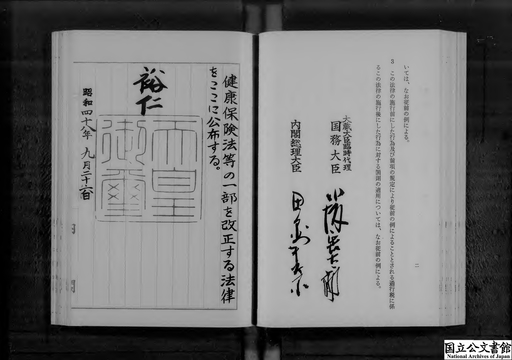 いては、なお従前の例による。
3 この法律の施行前にした行為及び前項の規定により従前の例によることとされる適行税に係
るこの法律の施行後にした行為に対する罰則の適用については、なお従前の例による。
二
大蔵大臣臨時代理
国務大臣
内閣総理大臣
田中角栄
健康保険法等の一部を改正する法律
をここに公布する。
裕仁
天皇御璽
昭和四十八年九月二十六日
国立公文書館
National Archives of Japan